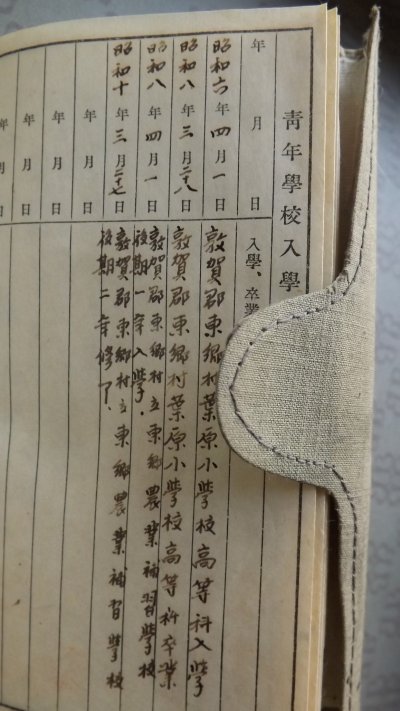 青年學校入學
年 月 日 入學、卒業
昭和六年四月一日 敦賀郡東郷村葉原小學校高等科入學
昭和八年三月二十八日 敦賀郡東郷村葉原小學校高等科卒業
昭和八年四月一日 敦賀郡東郷村立東郷農業補習學校
後期一年入學.
昭和十年三月二十七日 敦賀郡東郷村立東郷農業補習學校
後期二年修了.
年 月 日
年 月 日
年 月 日